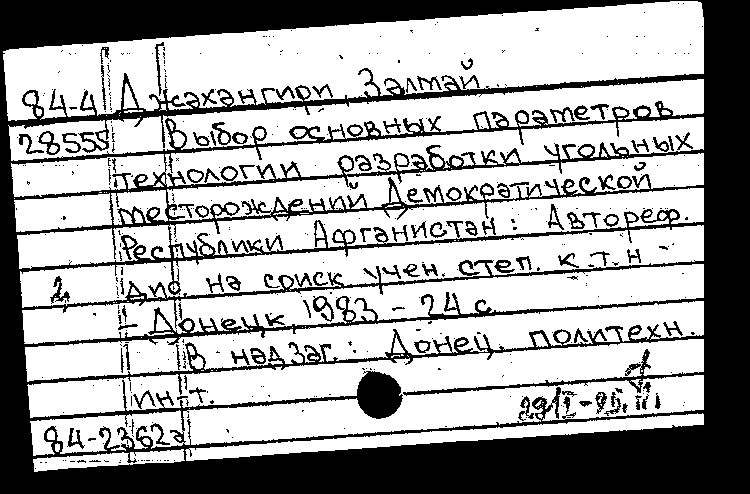 84-4 Джахангири, Залмай
28555 Выбор основных параметров
технологии разработки угольных
месторождений Демократической
Республики Афганистан: Автореф.
дис. на соиск учен. степ. к.т.н -
- Донецк, 1983 - 24 с.
В надзаг.: Донец. политехн.
ин-т.
84-2362а